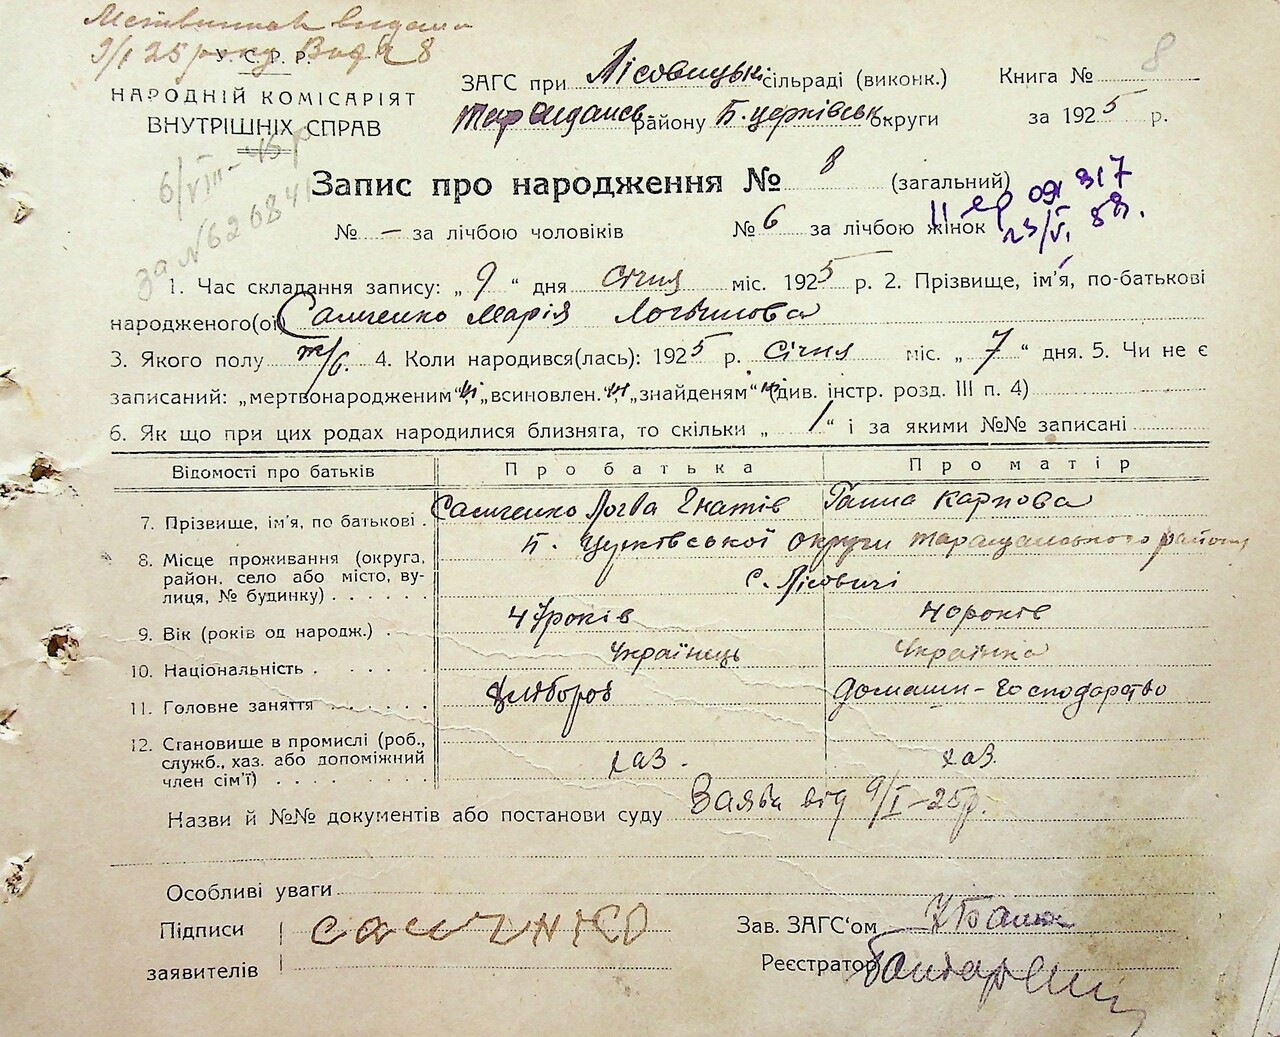 Метвиписк видана
9/I 25 року Вид № 8
У.С.Р.Р.
НАРОДНІЙ КОМІСАРІЯТ
ВНУТРІШНІХ СПРАВ
ЗАГС при Лісовицькі сільраді (виконк.) Книга № 8
Таращанськ. району Б. церківськ. округи за 1925 р.
6/VIII-45 р
за № 626841
Запис про народження № 8 (загальний)
№ — за лічбою чоловіків № 6 за лічбою жінок
II ЕР 091 817
23/VI. 88.
1. Час складання запису: „ 9 “ дня Січня міс. 1925 р. 2. Прізвище, ім'я, по-батькові
народженого(ої) Самченко Марія Логвинова
3. Якого полу ж/б. 4. Коли народився(лась): 1925 р. Січня міс. „ 7 “ дня. 5. Чи не є
записаний: „мертвонародженим“ ні „всиновлен.“ ні „знайденям“ ні (див. інстр. розд. III п. 4)
6. Як що при цих родах народилися близнята, то скільки „ 1 “ і за якими №№ записані
Відомості про батьків Про батька Про матір
7. Прізвище, ім'я, по батькові . Самченко Логва Гнатів Ганна Карпова
8. Місце проживання (округа, Б. Церківської округи Таращанського району
район, село або місто, ву- с. Лісовичі
лиця, № будинку) . . . . . .
9. Вік (років од народж.) . 47 років 40 років
10. Національність . . . . . Українець Українка
11. Головне заняття . . . . . . Хлібороб Домашн-Господарство
12. Становище в промислі (роб.,
служб., хаз. або допоміжний хаз. хаз.
член сім'ї) . . . . . . . .
Назви й №№ документів або постанови суду Заява від 9/I-25р.
Особливі уваги
Підписи самчнко Зав. ЗАГС‘ом
заявителів Реєстратор